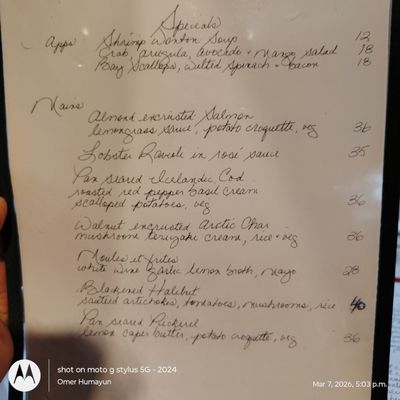 Specials
Apps Shrimp Wonton Soup 12
Crab arugula, avocado + Mango Salad 18
Bay Scallops, wilted Spinach + Bacon 18
Mains
Almond encrusted Salmon
lemongrass sauce, potato croquette, veg 36
Lobster Ravioli in rosé sauce 35
Pan Seared Icelandic Cod
roasted red pepper basil cream
scalloped potatoes, veg 36
Walnut encrusted Arctic Char
mushroom teriyaki cream, rice + veg 36
Moules et frites
white wine garlic lemon broth, mayo 28
Blackened Halibut
sautéed artichokes, tomatoes, mushrooms, rice 40
Pan seared Pickerel
lemon caper butter, potato croquette, veg 36
shot on moto g stylus 5G - 2024
Omer Humayun
Mar 7, 2026, 5:03 p.m.